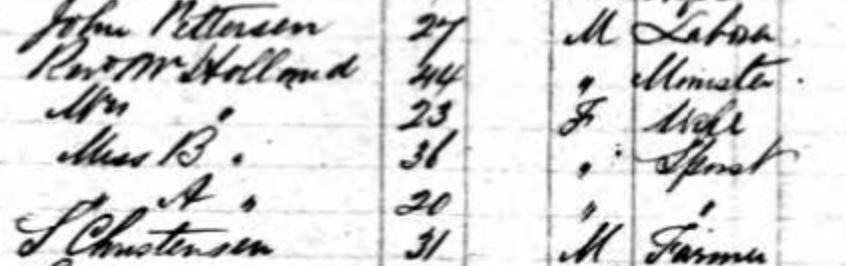 John Pettersen 27 M Laborer
Revd Mr Holland 44 " Minister
Mrs " 23 F Wife
Miss B " 36 " Spinst
" A " 20 " "
S Christensen 31 M Farmer